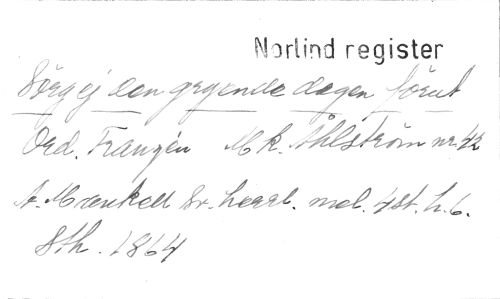 Norlind register
Sörg ej den gryende dagen förut
Ord. Franzén Mk. Åhlström nr. 42
A. Mankell Sv. herrl. mel. 4st. h. 6.
Sth. 1864